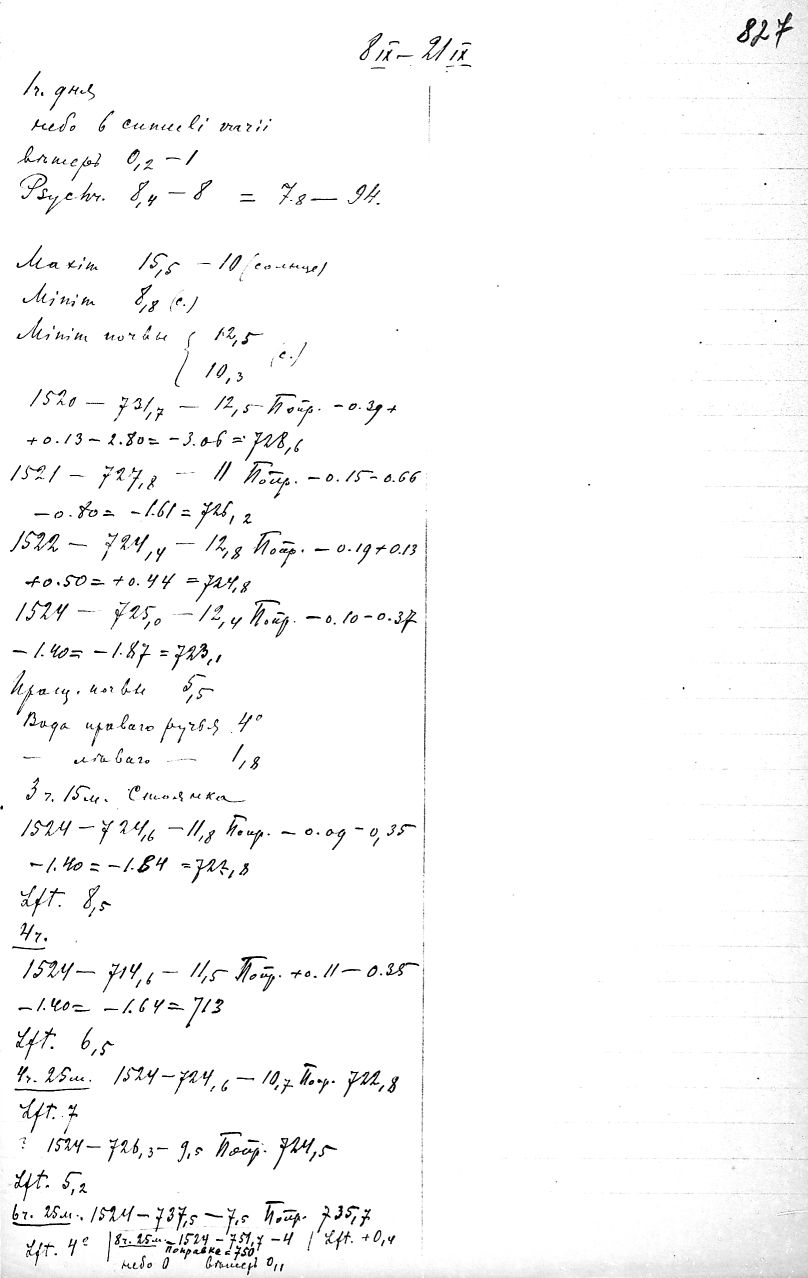 827
8 IX – 21 IX
1ч. дня
небо 6 cumuli varii
вѣтеръ 0,2 – 1
Psychr. 8,4 – 8 = 7.8 – 94.
Maxim 15,5 – 10 (солнце)
Minim 8,8 (с.)
Minim почвы { 12,5
10,3 (с.)
1520 – 731,7 – 12,5 Попр. – 0.39 +
+ 0.13 – 2.80 = – 3.06 = 728,6
1521 – 727,8 – 11 Попр. – 0.15 – 0.66
– 0.80 = – 1.61 = 726,2
1522 – 724,4 – 12,8 Попр. – 0.19 + 0.13
+ 0.50 = + 0.44 = 724,8
1524 – 725,0 – 12,4 Попр. – 0.10 – 0.37
– 1.40 = – 1.87 = 723,1
Пращ. почвы 5,5
Вода праваго ручья 4°
— лѣваго — 1,8
3 ч. 15м. Стоянка
1524 – 724,6 – 11,8 Попр. – 0.09 – 0,35
– 1.40 = – 1.84 = 722,8
Lft. 8,5
4ч.
1524 – 714,6 – 11,5 Попр. + 0.11 – 0.35
– 1.40 = – 1.64 = 713
Lft. 6,5
4ч. 25м. 1524 – 724,6 – 10,7 Попр. 722,8
Lft. 7
? 1524 – 726,3 – 9,5 Попр. 724,5
Lft. 5,2
6ч. 25м. 1524 – 737,5 – 7,5 Попр. 735,7
Lft. 4° | 8ч. 25м. – 1524 – 751,7 – 4 | Lft. + 0,4
Поправка = 750
небо 0 вѣтеръ 0,1